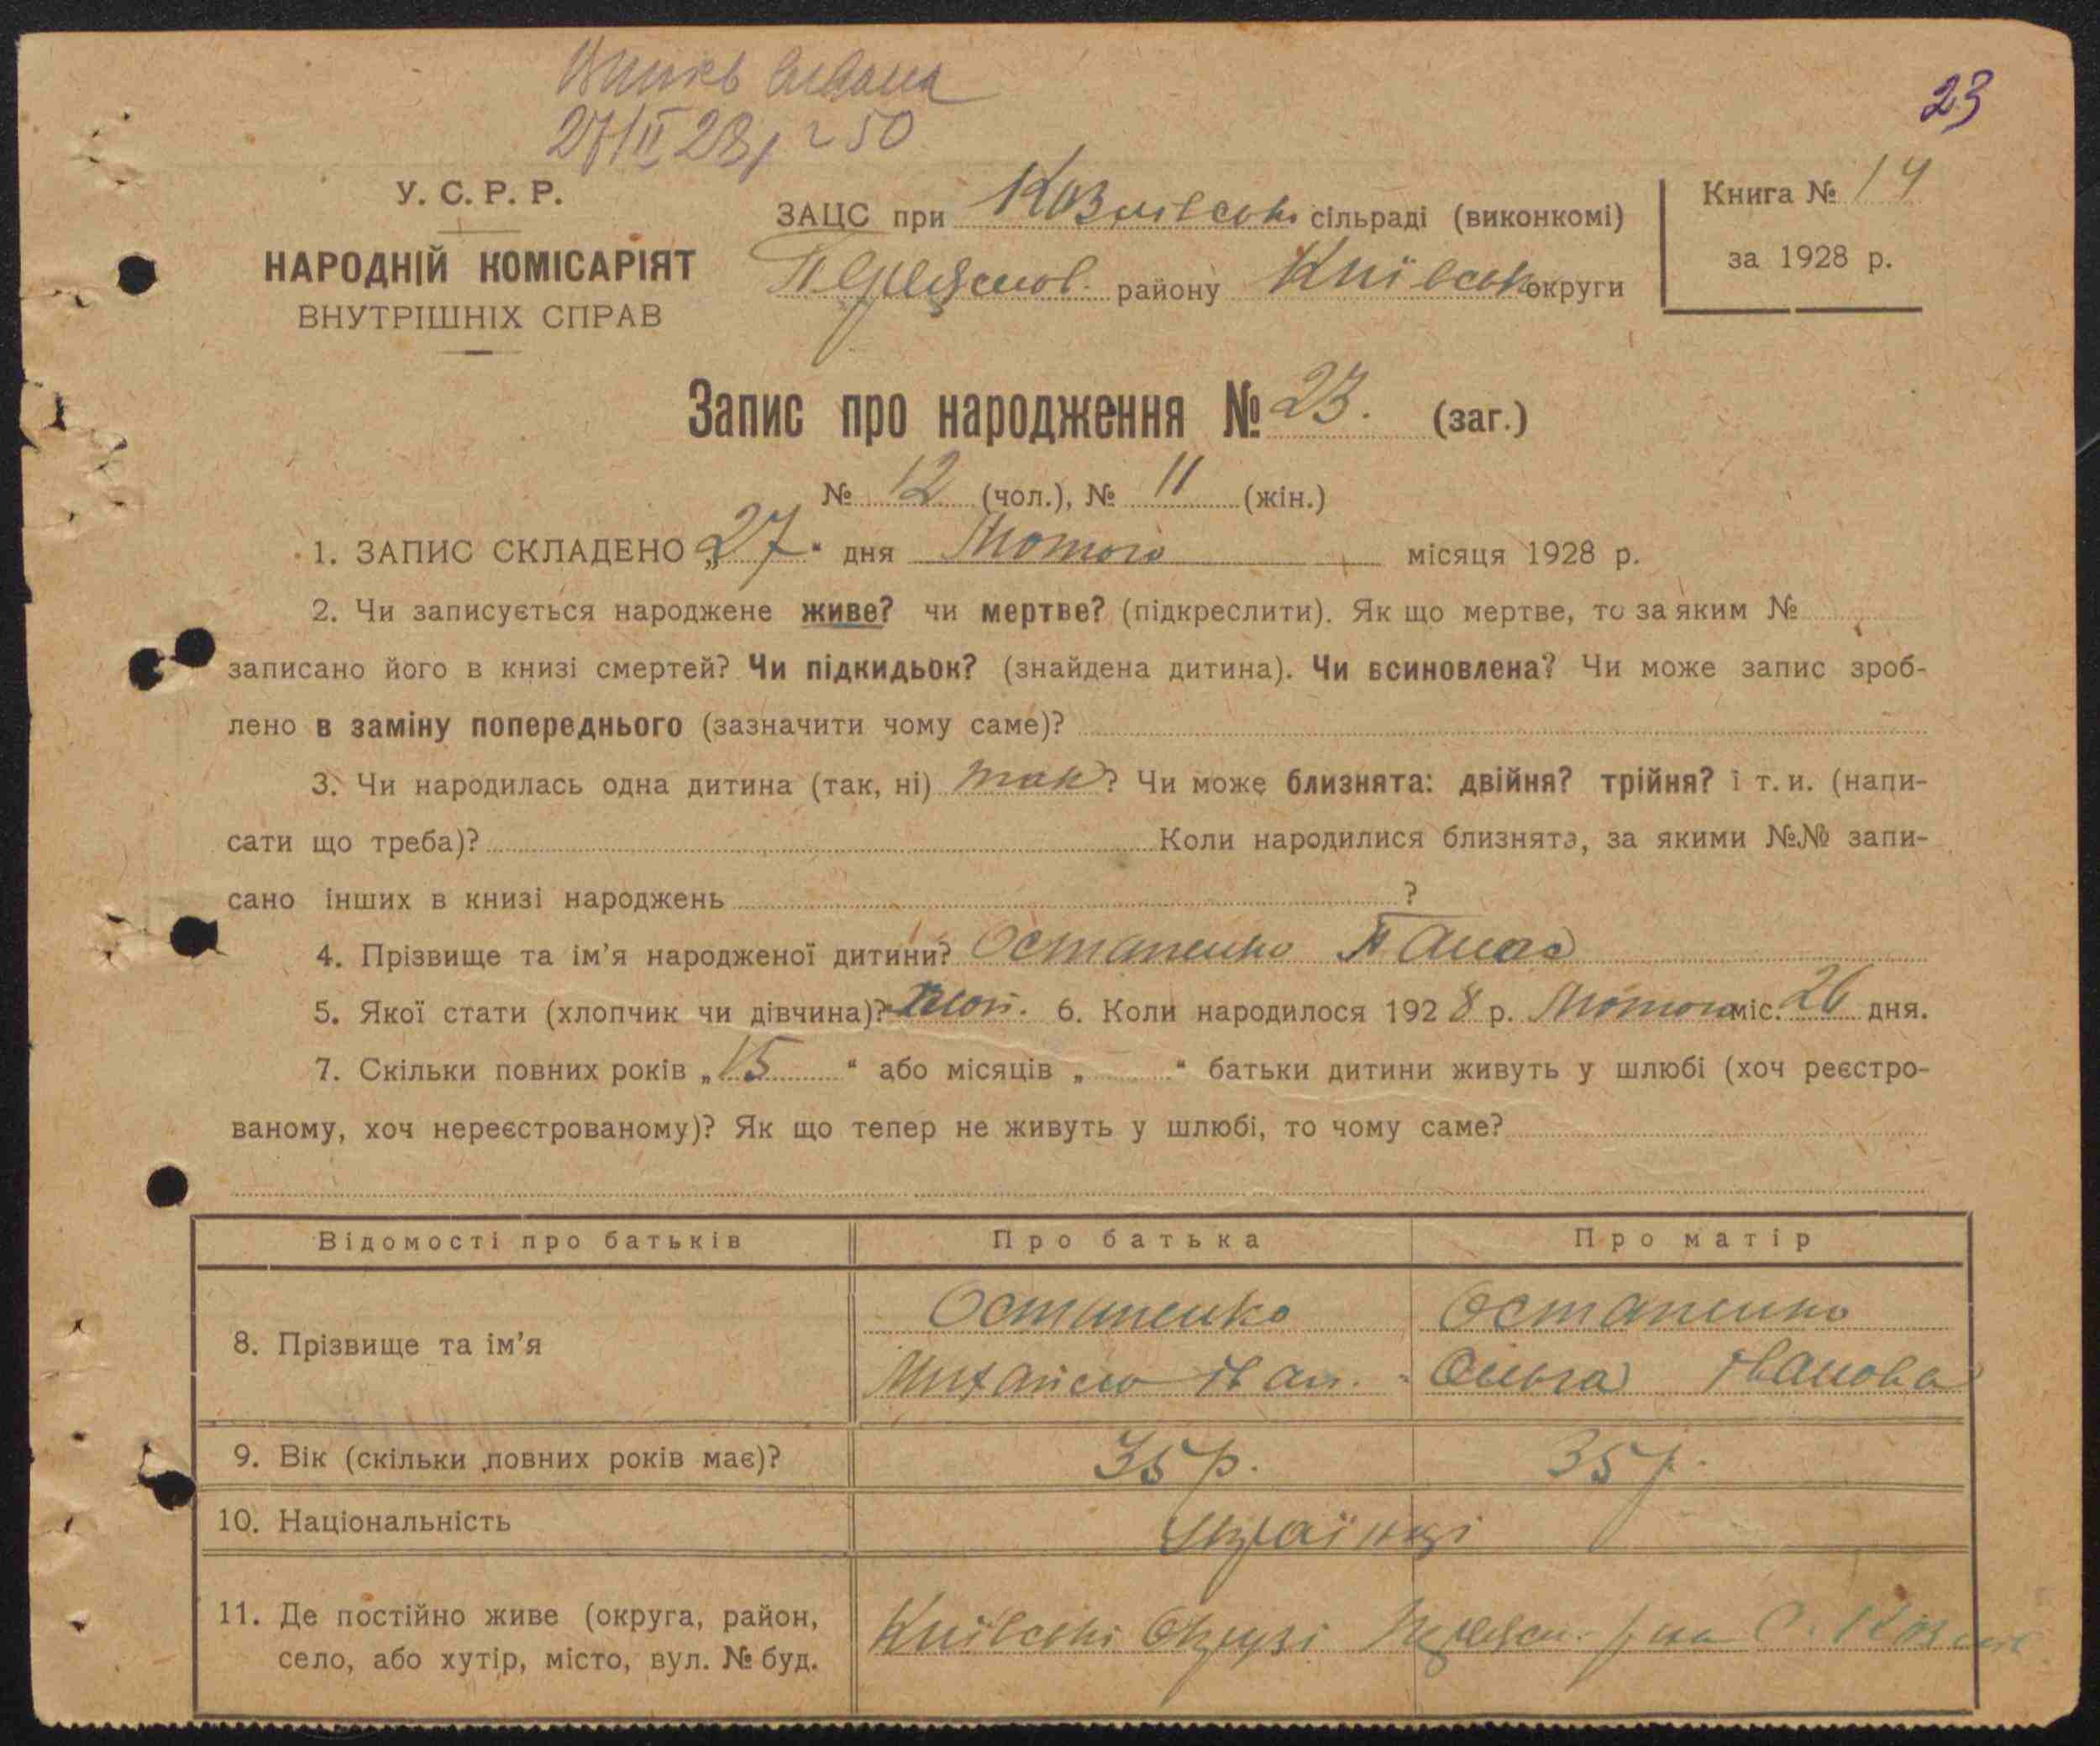 27/II 28 р 50
23
У. С. Р. Р.
НАРОДНІЙ КОМІСАРІЯТ
ВНУТРІШНІХ СПРАВ
ЗАЦС при Козлівські сільраді (виконкомі)
Переяслов. району Київськ округи
Книга № 14
за 1928 р.
Запис про народження № 23. (заг.)
№ 12 (чол.), № 11 (жін.)
1. ЗАПИС СКЛАДЕНО „27“ дня Лютого місяця 1928 р.
2. Чи записується народжене живе? чи мертве? (підкреслити). Як що мертве, то за яким №
записано його в книзі смертей? Чи підкидьок? (знайдена дитина). Чи всиновлена? Чи може запис зроб-
лено в заміну попереднього (зазначити чому саме)?
3. Чи народилась одна дитина (так, ні) так? Чи може близнята: двійня? трійня? і т. и. (напи-
сати що треба)? Коли народилися близнята, за якими №№ запи-
сано інших в книзі народжень ?
4. Прізвище та ім’я народженої дитини? Остапенко Панас
5. Якої стати (хлопчик чи дівчина)? 6. Коли народилося 1928 р. Лютого міс. 26 дня.
7. Скільки повних років „15“ або місяців „ “ батьки дитини живуть у шлюбі (хоч реєстро-
ваному, хоч нереєстрованому)? Як що тепер не живуть у шлюбі, то чому саме?
Відомості про батьків Про батька Про матір
8. Прізвище та ім’я
Остапенко Остапенко
Михайло Іван. Ольга Іванова
9. Вік (скільки повних років має)? 35 р. 35 р.
10. Національність Українці
11. Де постійно живе (округа, район,
село, або хутір, місто, вул. № буд.
Київські Окрузі Переясл. р-на С. Козлів